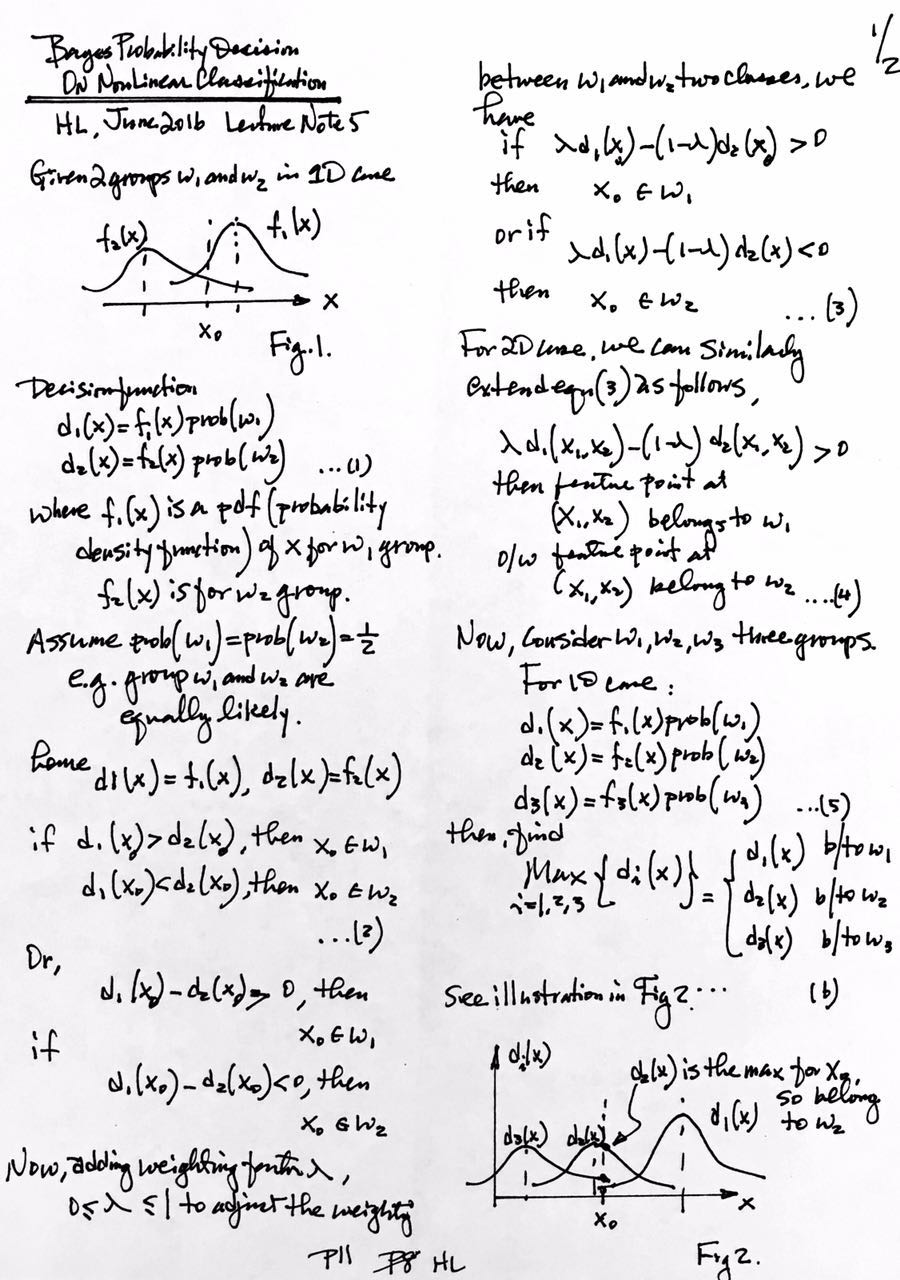 1/2
Bayes Probability Decision
On NonLinear Classification
HL, June 2016 Lecture Note 5
Given 2 groups w₁ and w₂ in 1D case
f₂(x) f₁(x)
x
x₀
Fig.1.
Decision function
d₁(x)=f₁(x) prob(w₁)
d₂(x)=f₂(x) prob(w₂) ...(1)
where f₁(x) is a pdf (probability
density function) of x for w₁ group.
f₂(x) is for w₂ group.
Assume prob(w₁)=prob(w₂)=1/2
e.g. group w₁ and w₂ are
equally likely.
d1(x)=f₁(x), d₂(x)=f₂(x)
if d₁(x₀)>d₂(x₀), then x₀ ∈ w₁
d₁(x₀)<d₂(x₀), then x₀ ∈ w₂
...(2)
Or,
d₁(x₀)-d₂(x₀)> 0, then
x₀ ∈ w₁
if
d₁(x₀)-d₂(x₀)<0, then
x₀ ∈ w₂
Now, adding weighting factor λ,
0≤ λ ≤1 to adjust the weighty
between w₁ and w₂ two classes, we
have
if λd₁(x₀)-(1-λ)d₂(x₀) > 0
then x₀ ∈ w₁
or if
λd₁(x)-(1-λ)d₂(x)<0
then x₀ ∈ w₂
...(3)
For 2D case, we can similarly
extend eqn(3) as follows,
λd₁(x₁,x₂)-(1-λ) d₂(x₁,x₂) > 0
then feature point at
(x₁,x₂) belongs to w₁
o/w feature point at
(x₁,x₂) belong to w₂ ....(4)
Now, Consider w₁, w₂, w₃ three groups.
For 1D case:
d₁(x)=f₁(x) prob(w₁)
d₂(x)=f₂(x) prob(w₂)
d₃(x)=f₃(x) prob(w₃) ...(5)
then, find
Max { di(x) } = { d₁(x) b/to w₁
i=1,2,3 d₂(x) b/to w₂
d₃(x) b/to w₃
See illustration in Fig 2. ... (6)
di(x)
d₂(x) is the max for x₀,
so belong
to w₂
d₃(x) d₂(x) d₁(x)
x
x₀
Fig 2.
P11 P8 HL